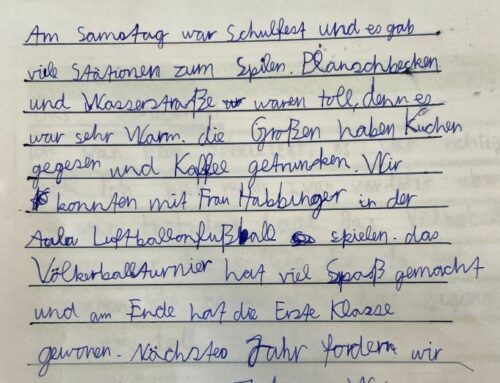 Am Samstag war Schulfest und es gab
viele Stationen zum Spilen. Planschbecken
und Wasserstraße waren toll, denn es
war sehr Warm. die Großen haben Kuchen
gegesen und Kaffee getruncken. Wir
konnten mit Frau Habbinger in der
Aula Luftballonfußball spielen. das
Völkerballturnier hat viel Spaß gemacht
und am Ende hat die Erste Klasse
gewonen. Nächstes Jahr fordern wir